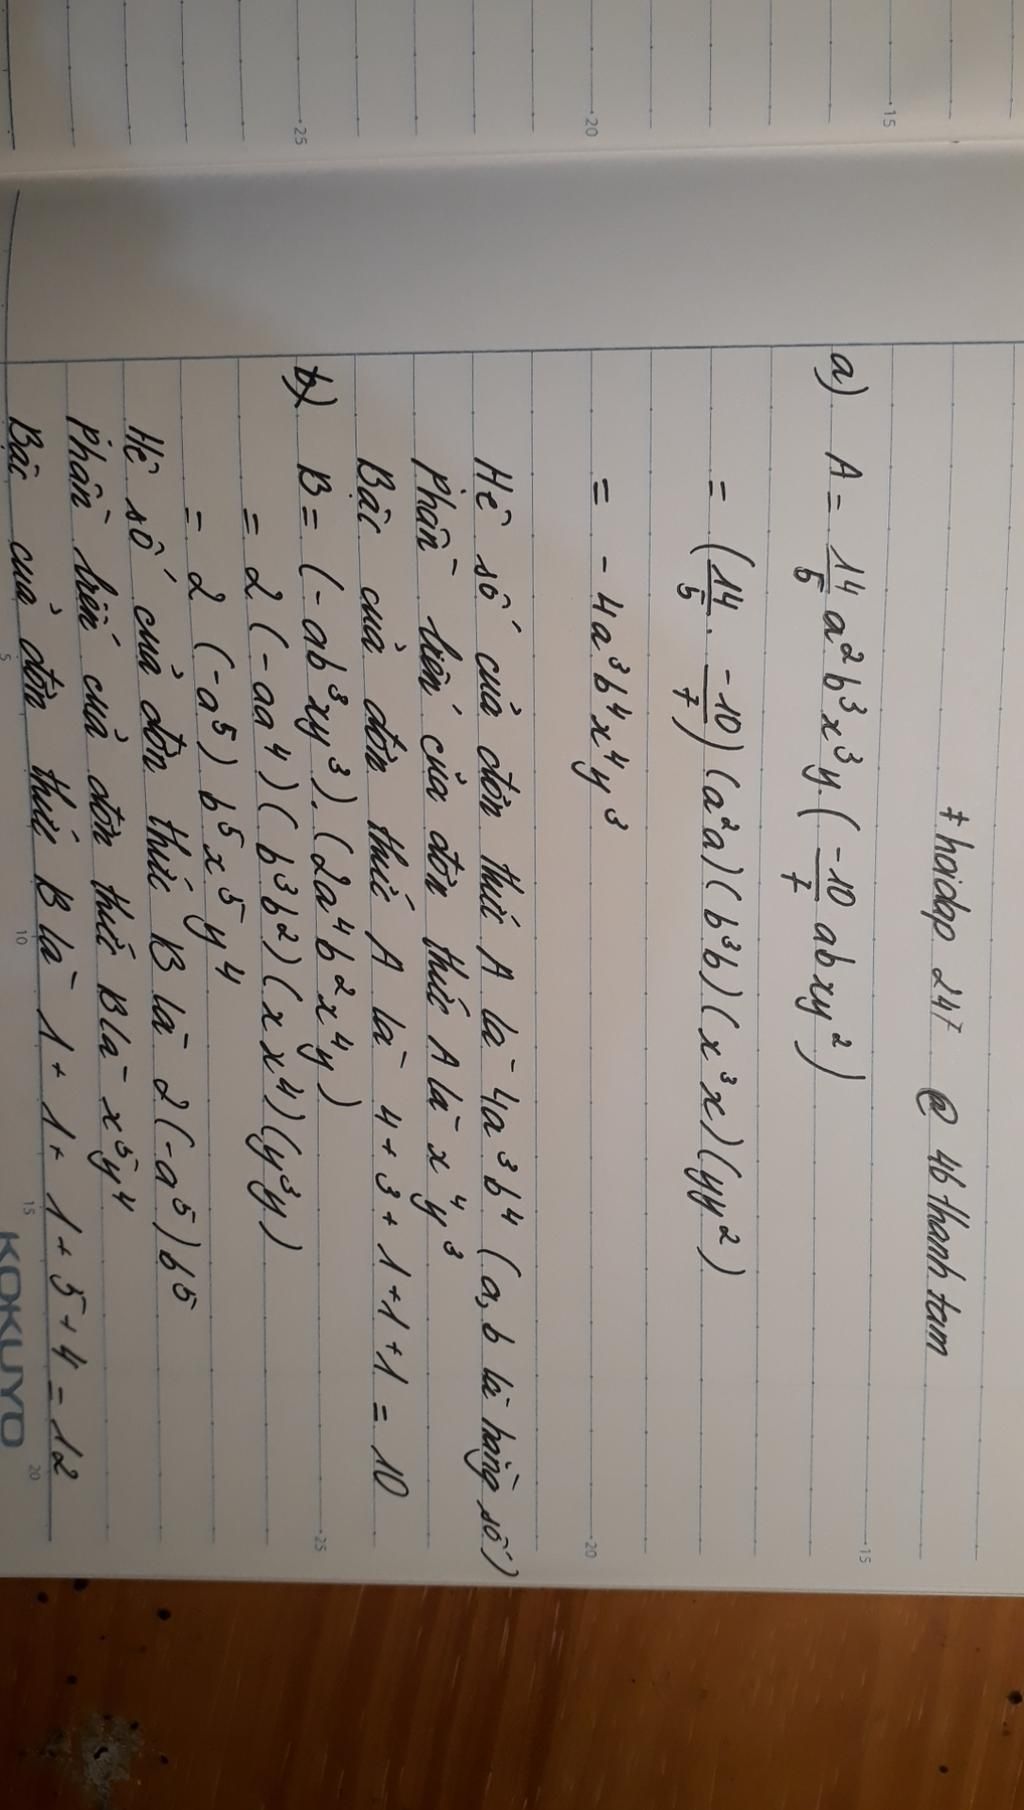 # hoidap 247 @ 46 thanh tam
a) A = 14/5 a²b³x³y.(-10/7 abxy²)
= (14/5 . -10/7)(a²a)(b³b)(x³x)(yy²)
= -4a³b⁴x⁴y³
Hê số của đơn thức A là -4a³b⁴ (a, b là hằng số)
Phần biến của đơn thức A là x⁴y³
Bậc của đơn thức A là 4+3+1+1+1 = 10
b) B = (-ab³xy³).(2a⁴b²x⁴y)
= 2(-aa⁴)(b³b²)(xx⁴)(y³y)
= 2 (-a⁵) b⁵x⁵y⁴
Hê số của đơn thức B là 2(-a⁵)b⁵
Phần biến của đơn thức B là x⁵y⁴
Bậc của đơn thức B là 1+1+1+5+4 = 12
15
20
25
15
20
25
5
10
15
20
KOKUYO